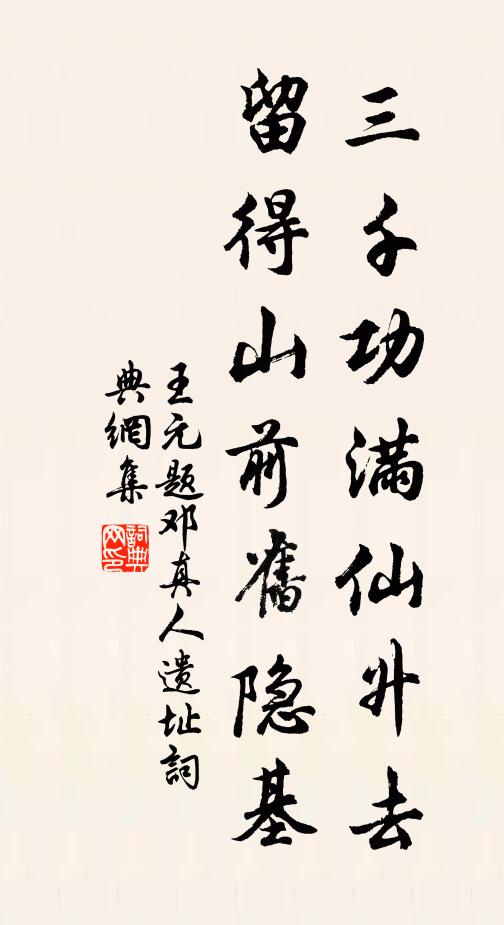 三千功满仙升去
留得山前舊隐基
王元题邓真人遗址詞
典網集
詞典网印